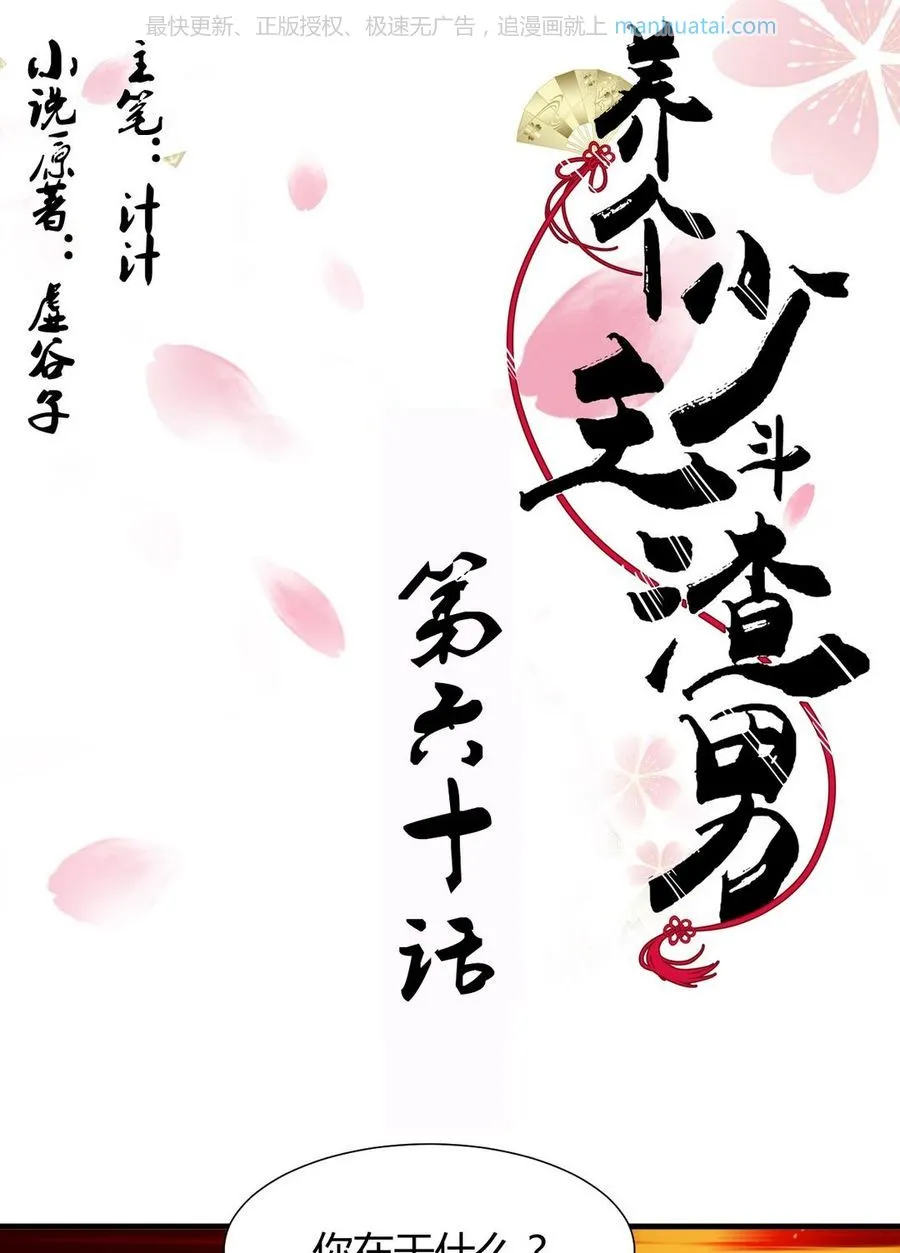 最快更新、正版授权、极速无广告，追漫画就上 manhuatai.com
养个少主斗渣男
第六十话
主笔：计计
小说原著：虚谷子
你在干什么？